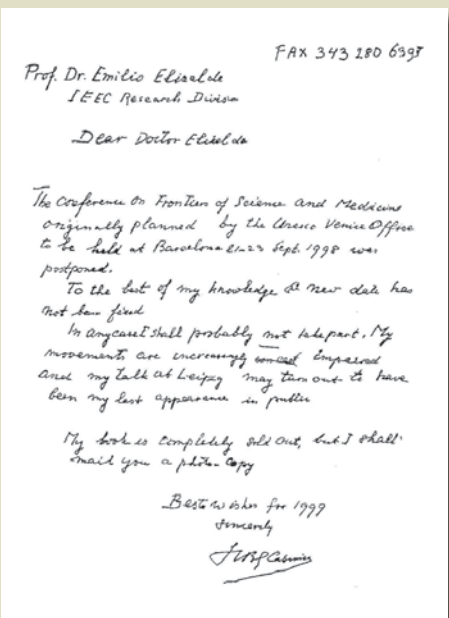 FAX 343 280 6395
Prof. Dr. Emilio Elizalde
IEEC Research Division
Dear Doctor Elizalde
The Conference on Frontiers of Science and Medicine
originally planned by the Unesco Venice Office
to be held at Barcelona 21-23 Sept. 1998 was
postponed.
To the best of my knowledge a new date has
not been fixed
In any case I shall probably not take part. My
movements are increasingly impaired
and my talk at Leipzig may turn out to have
been my last appearance in public
My book is completely sold out, but I shall
maid you a photo-copy
Best wishes for 1999
Sincerely
HBG Casimir